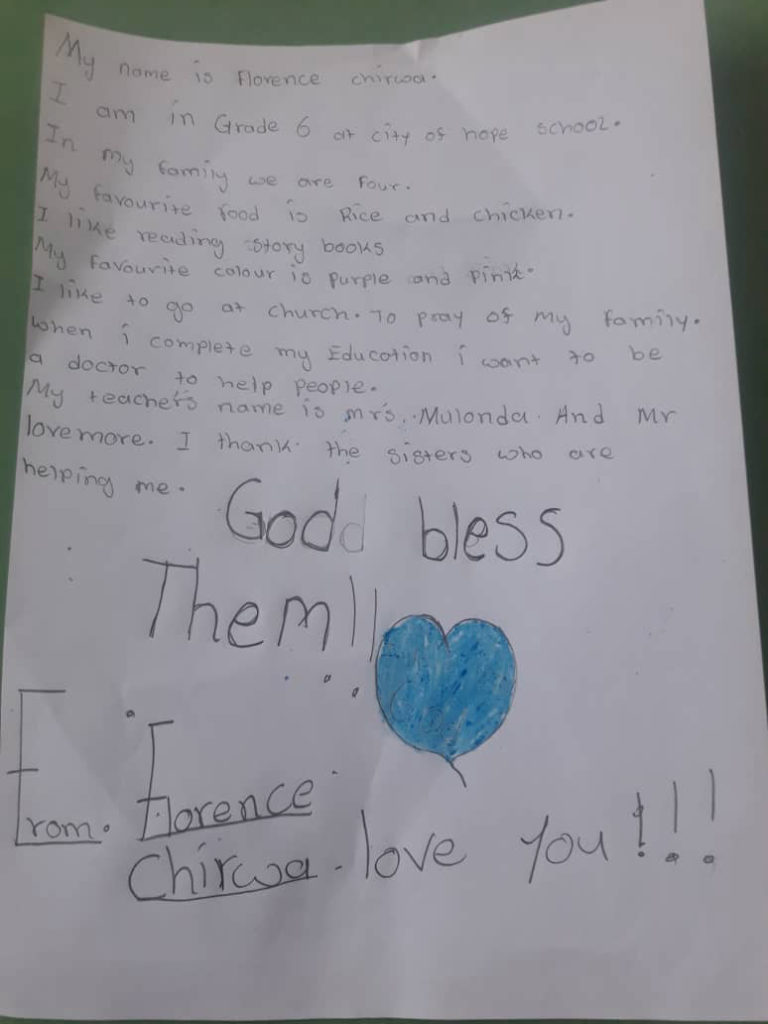 My name is Florence chirwa.
I am in Grade 6 at city of hope school.
In my family we are four.
My favourite food is Rice and chicken.
I like reading story books
My favourite colour is purple and pink.
I like to go at church. To pray of my family.
when i complete my Education i want to be
a doctor to help people.
My teacher's name is mrs. Mulonda. And Mr
lovemore. I thank the sisters who are
helping me.
God bless
Them!!
From. Florence
Chirwa. love you!!!